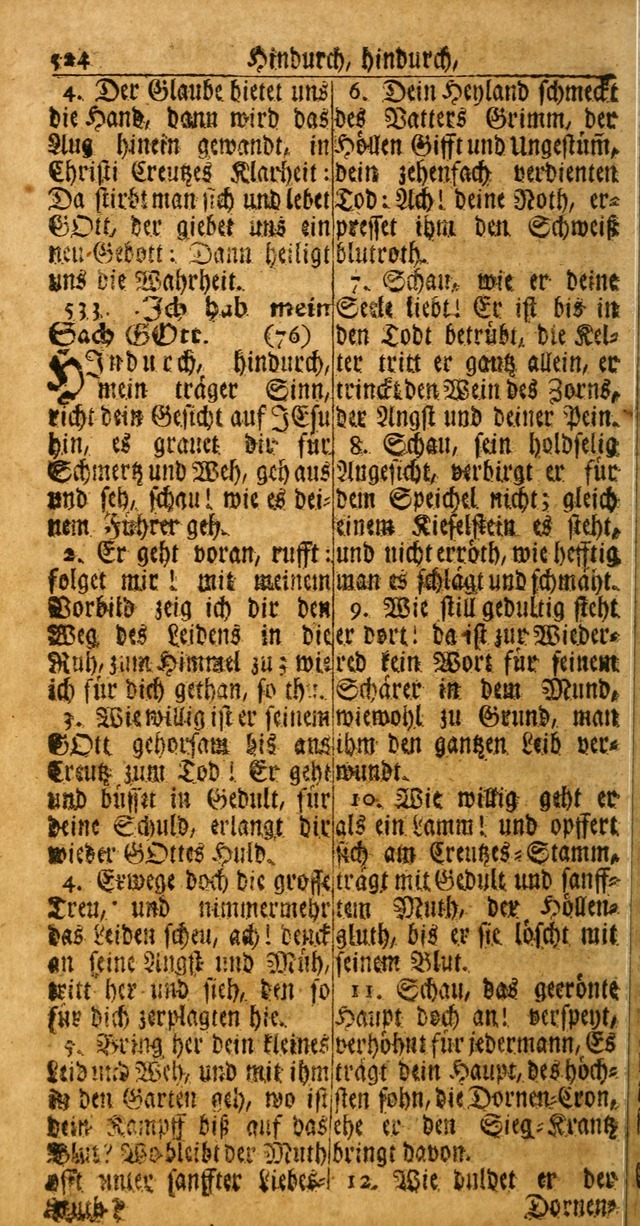 524 Hindurch, hindurch,
4. Der Glaube bietet uns
die Hand, dann wird das
Aug hinein gewandt, in
Christi Creutzes Klarheit:
Da stirbt man sich und lebet
GOtt, der giebet uns ein
neu Gebott: Dann heiligt
uns die Wahrheit.
533. Ich hab mein
Sach GOtt. (76)
HIndurch, hindurch,
mein träger Sinn,
richt dein Gesicht auf JEsu
hin, es grauet dir für
Schmertz und Weh, geh aus
und seh, schau! wie es dei-
nem Führer geh.
2. Er geht voran, rufft:
folget mir! mit meinem
Vorbild zeig ich dir den
Weg des Leidens in die
Ruh, zum Himmel zu; wie
ich für dich gethan, so thu.
3. Wie willig ist er seinem
GOtt gehorsam bis ans
Creutz zum Tod! Er geht
und büsset in Gedult, für
deine Schuld, erlangt dir
wieder GOttes Huld.
4. Erwege doch die grosse
Treu, und nimmermehr
das Leiden scheu, ach! denck
an seine Angst und Müh,
tritt her und sieh, den so
für dich zerplagten hie.
5. Bring her dein kleines
Leid und Weh, und mit ihm
in den Garten geh, wo ist
dein Kampff biß auf das
Blut? Wo bleibt der Muth
offt unter sanffter Liebes-
6. Dein Heyland schmeckt
des Vatters Grimm, der
Höllen Gifft und Ungestüm̃,
dein zehenfach verdienten
Tod: Ach! deine Noth, er-
presset ihm den Schweiß
blutroth.
7. Schau, wie er deine
Seele liebt! Er ist bis in
den Todt betrübt, die Kel-
ter tritt er gantz allein, er
trinckt den Wein des Zorns,
der Angst und deiner Pein.
8. Schau, sein holdselig
Angesicht, verbirgt er für
dem Speichel nicht; gleich
einem Kieselstein es steht,
und nicht erröth, wie hefftig
man es schlägt und schmäht.
9. Wie still gedultig steht
er dort! da ist zur Wieder-
red kein Wort für seinem
Schärer in dem Mund,
wiewohl zu Grund, man
ihm den gantzen Leib ver-
wundt.
10. Wie willig geht er
als ein Lamm! und opffert
sich am Creutzes-Stamm,
trägt mit Gedult und sanff-
tem Muth, der Höllen-
gluth, bis er sie löscht mit
seinem Blut.
11. Schau, das gecrönte
Haupt doch an! verspeyt,
verhöhnt für jedermann, Es
trägt dein Haupt, des höch-
sten sohn, die Dornen-Cron,
ehe er den Sieg-Krantz
bringt davon.
12. Wie duldet er der
Dornen-